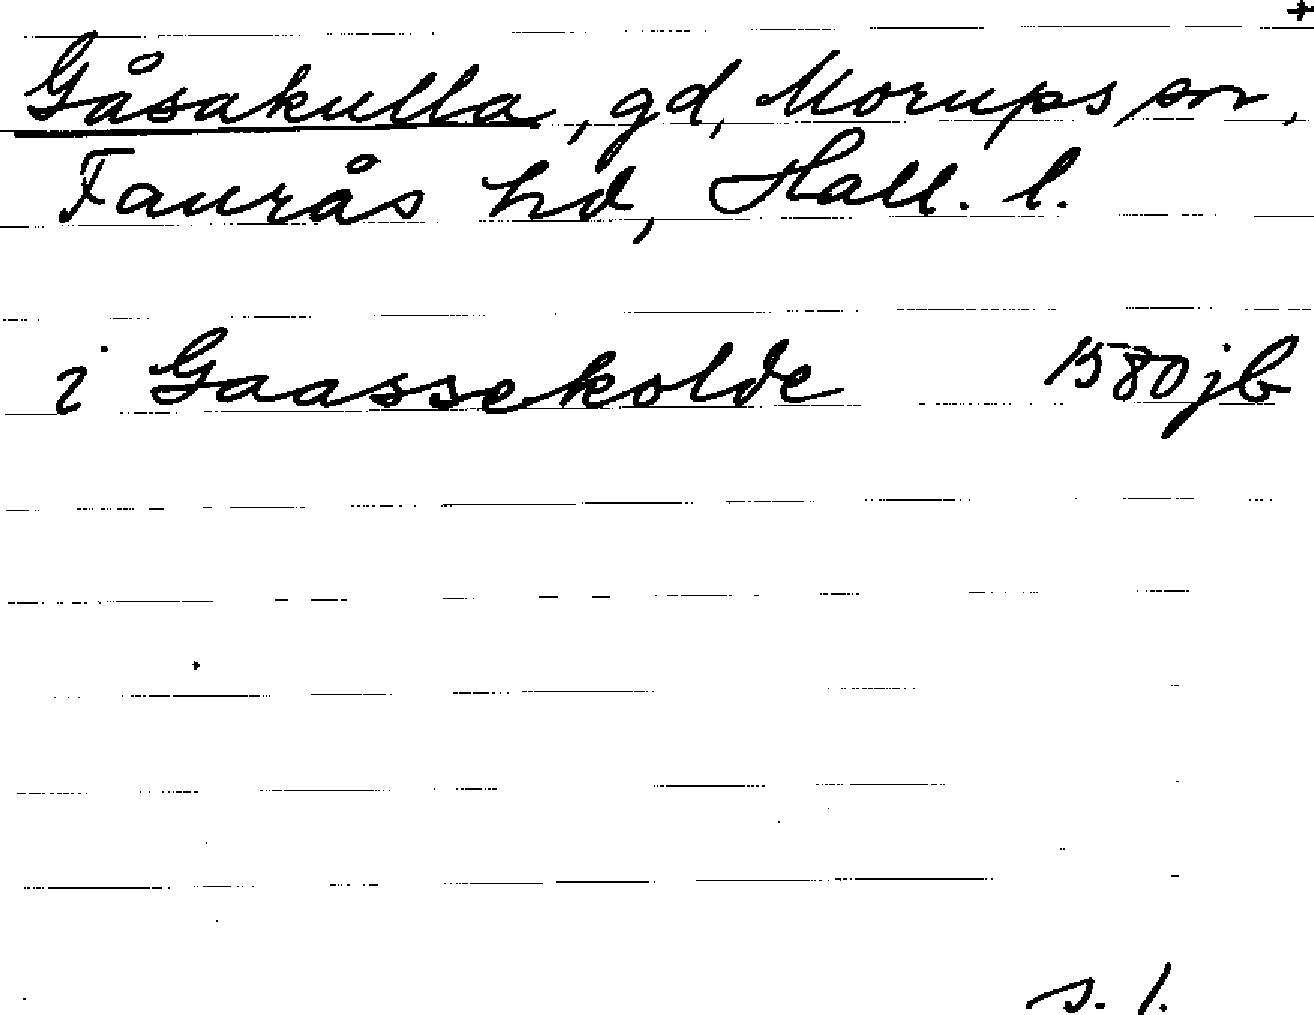 +
Gåsakulla, gd, Morups sn,
Faurås hd, Hall. l.
i Gaassekolde 1580 jb
s. 1.